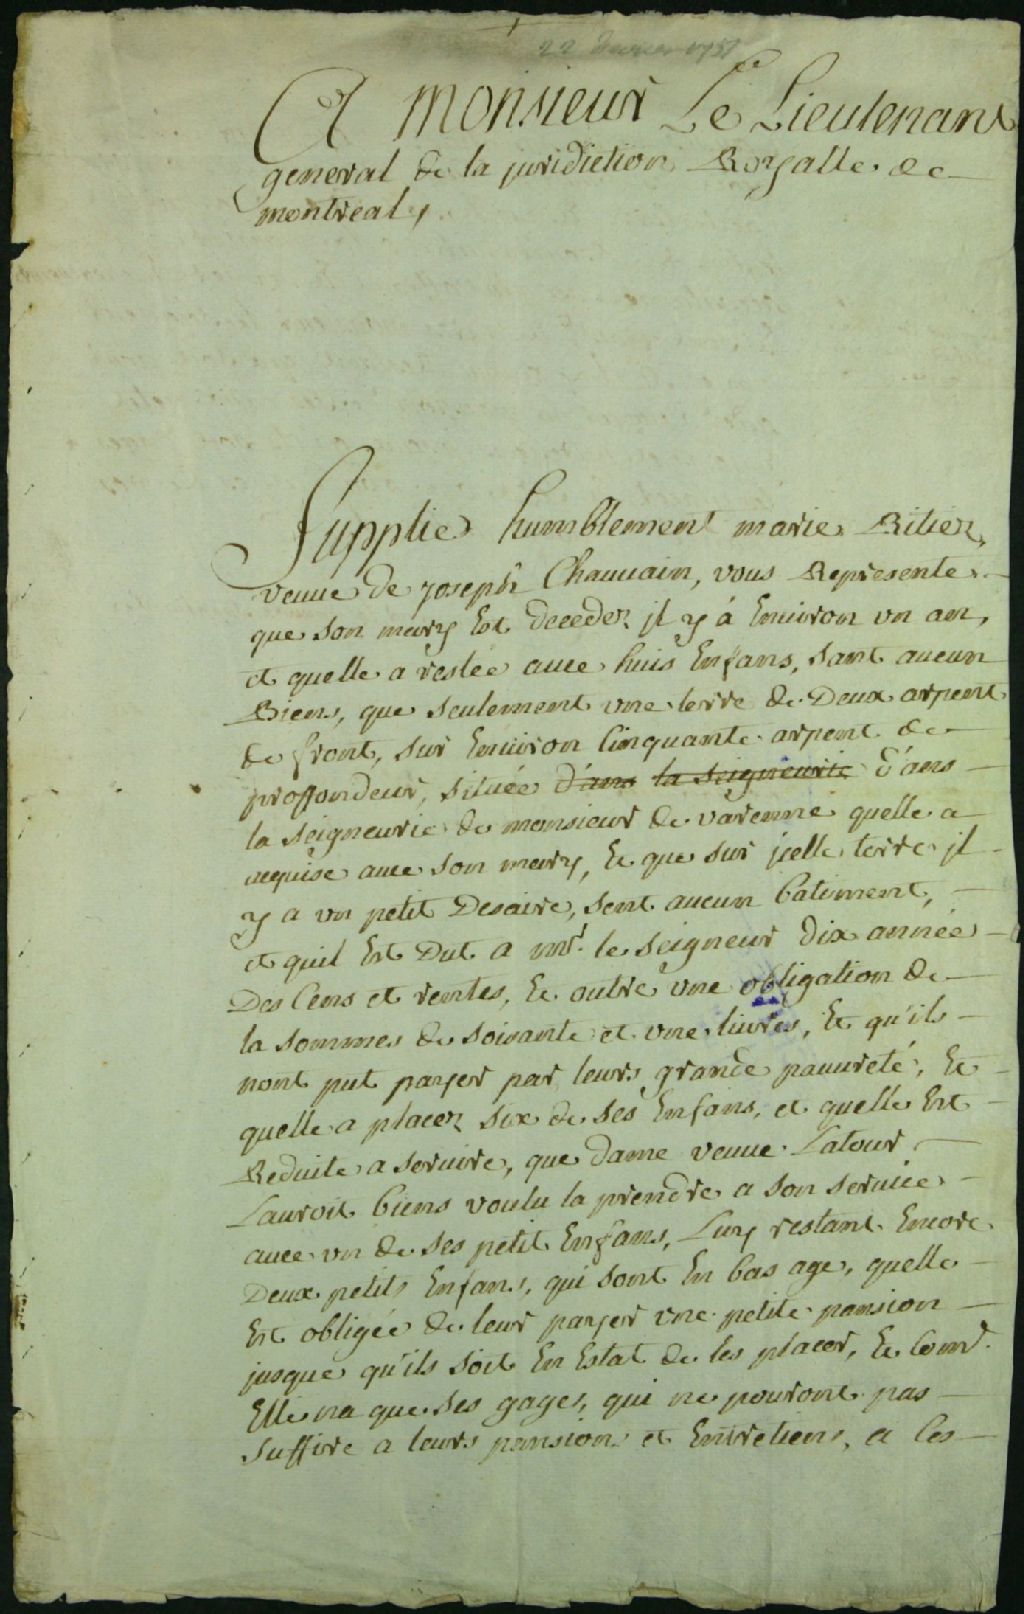 22 fevrier 1751
A Monsieur Le Lieutenant
general de la juridiction Royalle de
montreal,
Supplie humblement marie Ritier,
veuue de joseph Chauuain, vous Represente
que son mary Est deceder jl y á Enuiron un an,
et quelle a restée auec huis Enfans, sant aucun
Biens, que seulement une terre de Deux arpent
de front, sur Enuiron Cinquante arpent de
proffondeur, située d'ans la seigneurie d'ans
la seigneurie de monsieur de varenne quelle a
acquise auec son mary, Et que sur jcelle terre jl
y a un petit Desaire, sent aucun batiment,
et quil Est Dut a mr. le seigneur dix année
Des Cens et rentes, Et outre une obligation de
la sommes de soixante et une liures, Et qu'ils
nont put payer par leurs grande pauureté, Et
quelle a placer six de ses Enfans, et quelle Est
Reduite a seruire, que dame veuue Latour
Lauroit biens voulu la prendre a son seruice
auec un de ses petit Enfans, Luy restant Encore
Deux petits Enfans, qui sont En bas age, quelle
Est obligée de leur payer une petite pansion
jusque qu'ils soit En Estat de les placer, Et Comme
Elle na que ses gages, qui ne pouront pas
suffire a leurs pansions et Entretiens, a Ces